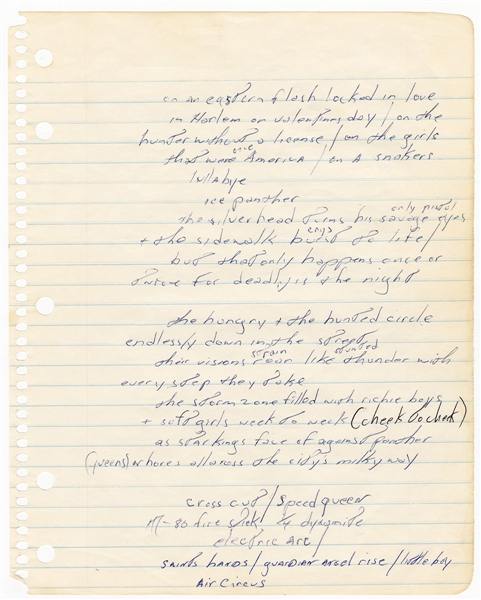 on an eastern flash locked in love
in Harlem on valentines day / on the
hunter without a license / on the girls
that were once America / on a smokers
lullabye
ice panther
the silverhead turns his savage eyes only pistol
+ the sidewalk burst to life / crys
but that only happens once or
twice for deadly is the night
the hungry + the hunted circle
endlessly down in the street
their visions roar like thunder with strain hunted
every step they take
the storm zone filled with richie boys
+ soft girls week to week (cheek to cheek)
as starkings face off against panther
(queens) whores all across the city's milky way
cross cut / speed queen
M-80 fire stick / 1/4 dynamite
electric arc /
saints hands / guardian angel rise / little boy
Air Circus